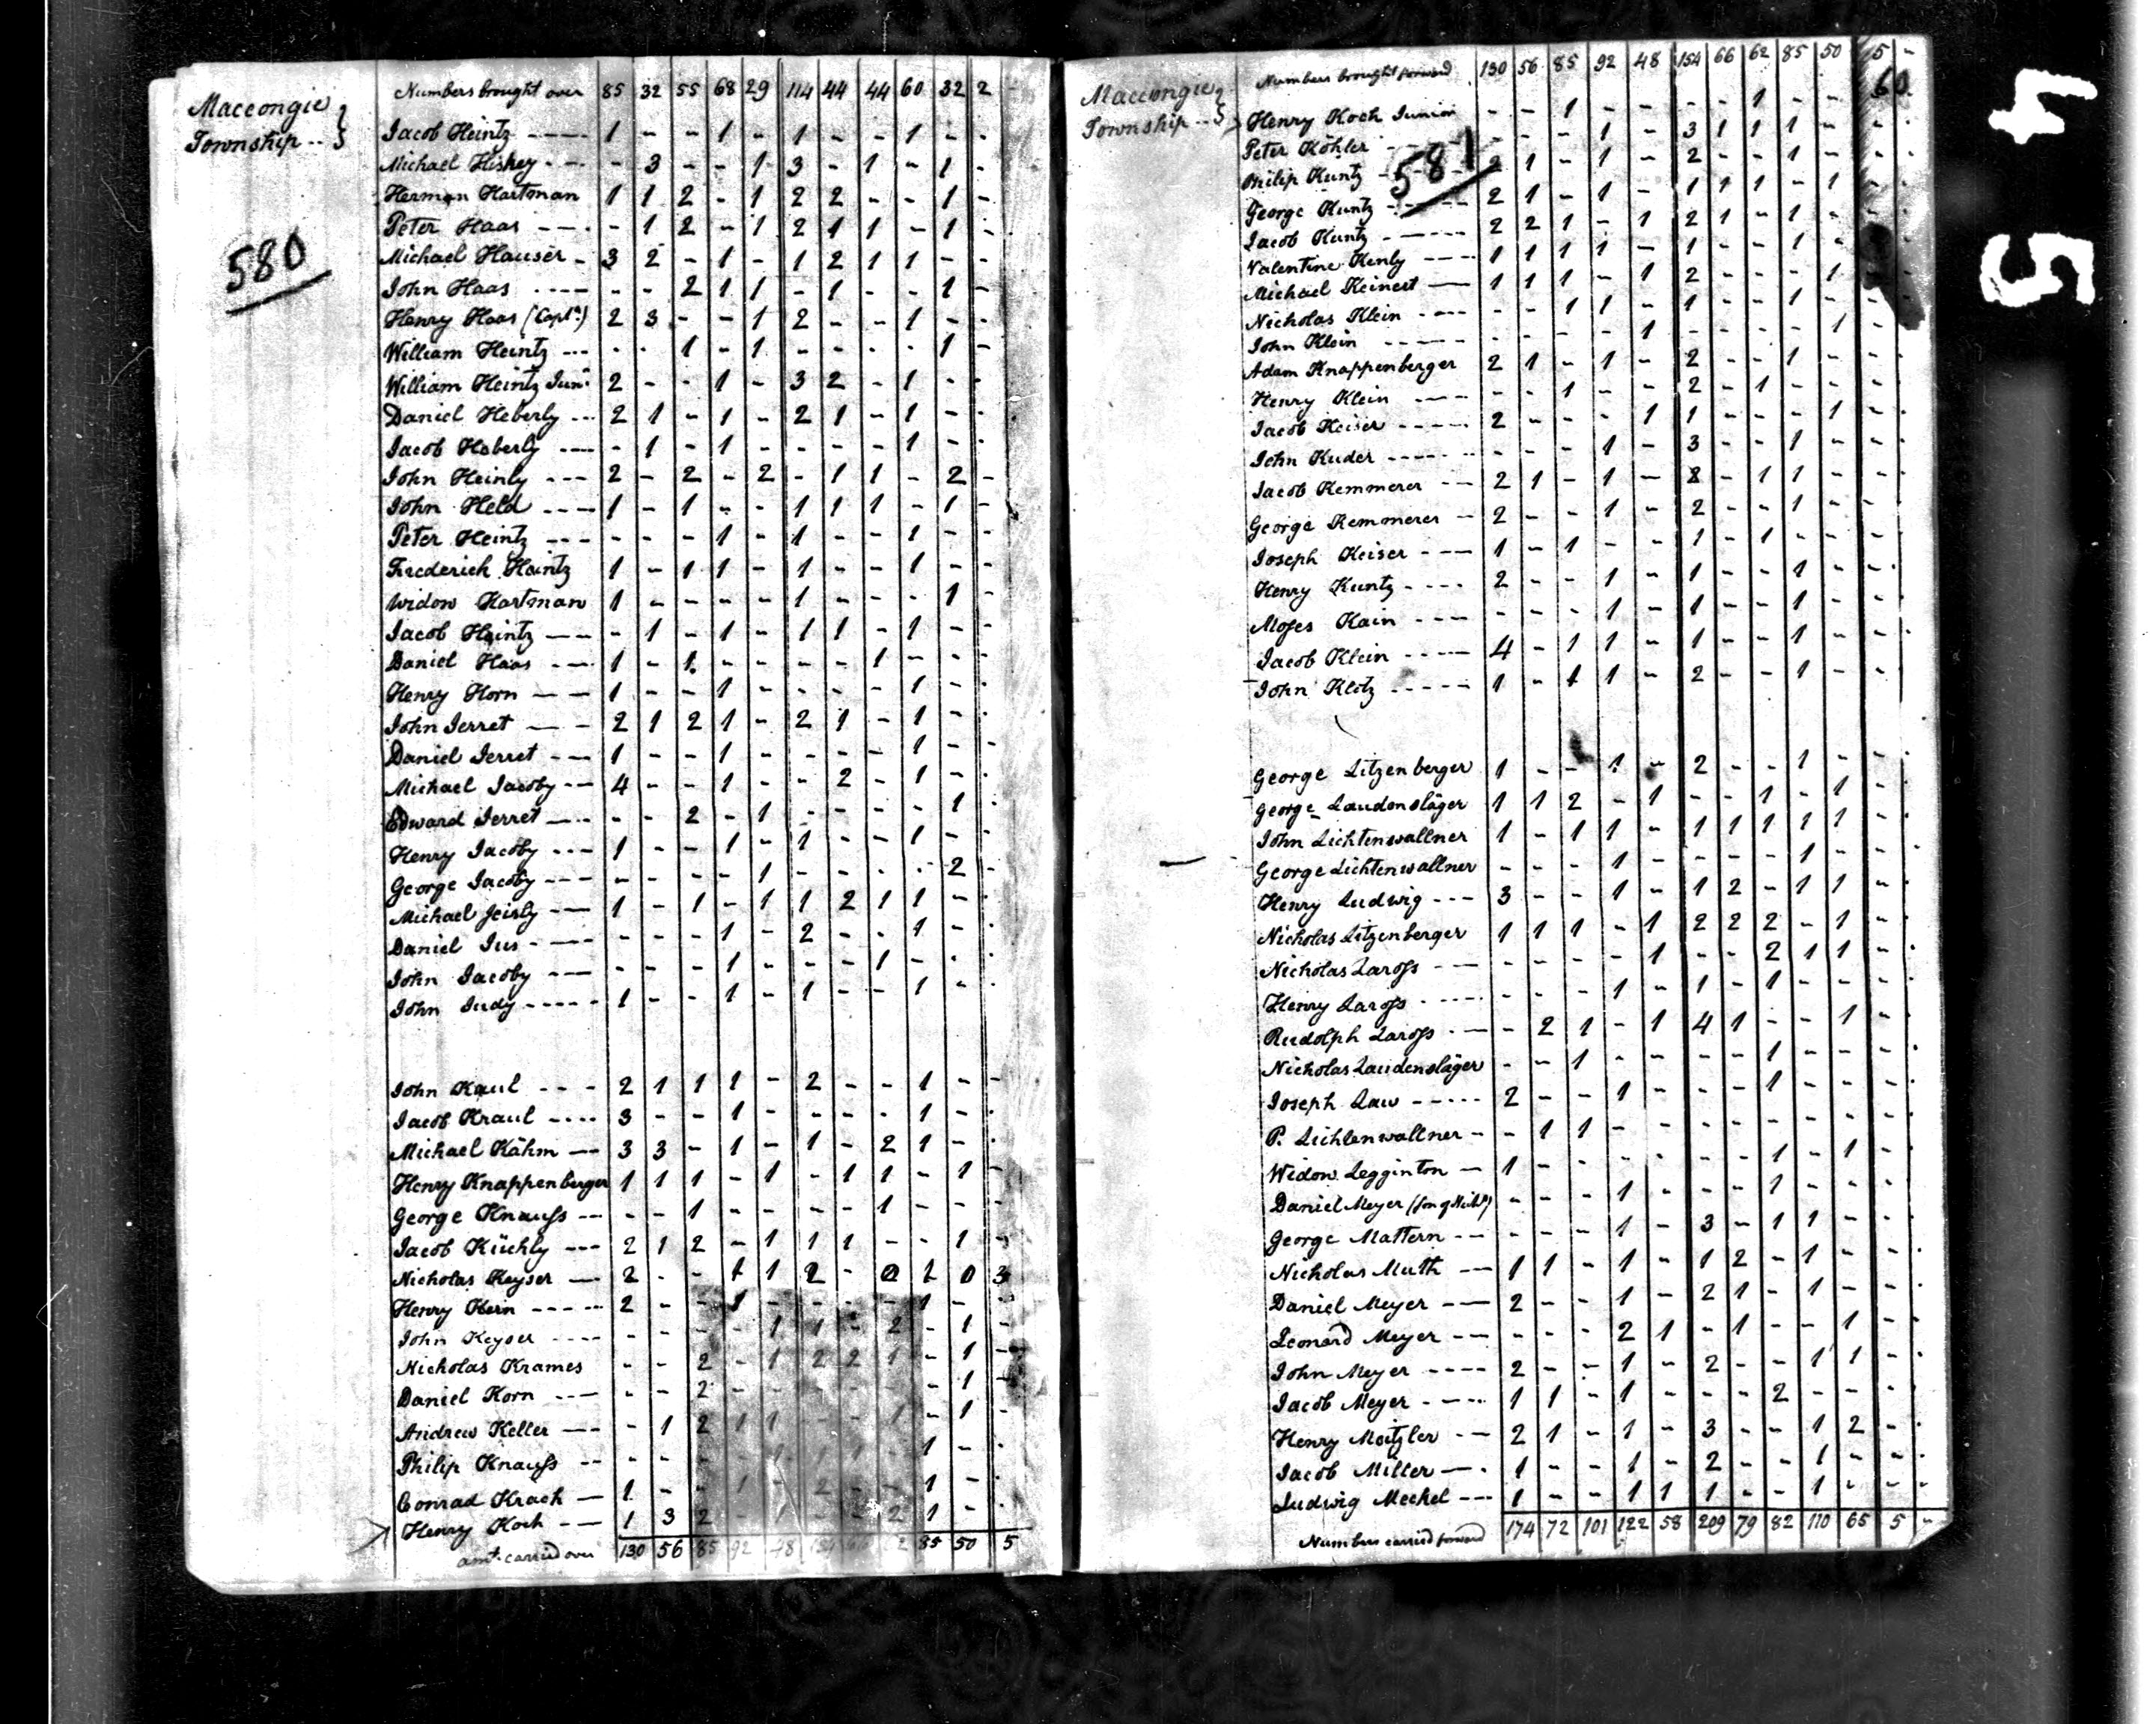 Maccongie
Township
580
Numbers brought over 85 32 55 68 29 114 44 44 60 32 2
Jacob Heintz ---- 1 - - 1 - 1 - - 1 - -
Michael Hiskey --- - 3 - - 1 3 - 1 - 1 -
Herman Hartman 1 1 2 - 1 2 2 - - 1 -
Peter Haas --- - 1 2 - 1 2 1 1 - 1 -
Michael Hauser - 3 2 - 1 - 1 2 1 1 - -
John Haas ---- - - 2 1 1 - 1 - - 1 -
Henry Haas (Capt.n) 2 3 - - 1 2 - - 1 - -
William Heintz --- - - 1 - 1 - - - - 1 -
William Heintz Jun.r 2 - - 1 - 3 2 - 1 - -
Daniel Heberly --- 2 1 - 1 - 2 1 - 1 - -
Jacob Heberly ---- - 1 - 1 - - - - 1 - -
John Heinly --- 2 - 2 - 2 - 1 1 - 2 -
John Held ---- 1 - 1 - - 1 1 1 - 1 -
Peter Heintz --- - - - 1 - 1 - - 1 - -
Frederich Haintz 1 - 1 1 - 1 - - 1 - -
Widow Hartman 1 - - - - 1 - - - 1 -
Jacob Heintz --- - 1 - 1 - 1 1 - 1 - -
Daniel Haas --- 1 - 1 - - - - 1 - - -
Henry Horn --- 1 - - 1 - - - - 1 - -
John Jerret --- 2 1 2 1 - 2 1 - 1 - -
Daniel Jerret --- 1 - - 1 - - - - 1 - -
Michael Jacoby --- 4 - - 1 - - 2 - 1 - -
Edward Jerret --- - - 2 - 1 - - - - 1 -
Henry Jacoby --- 1 - - 1 - 1 - - 1 - -
George Jacoby --- - - - - 1 - - - - 2 -
Michael Jeisly --- 1 - 1 - 1 1 2 1 1 - -
Daniel Jus ---- - - - 1 - 2 - - 1 - -
John Jacoby --- - - - 1 - - - 1 - - -
John Judy ----- 1 - - 1 - 1 - - 1 - -
John Kaul --- 2 1 1 1 - 2 - - 1 - -
Jacob Kraul ---- 3 - - 1 - - - - 1 - -
Michael Kähm --- 3 3 - 1 - 1 - 2 1 - -
Henry Knappenberger 1 1 1 - 1 - 1 1 - 1 -
George Knauss --- - - 1 - - - - 1 - - -
Jacob Küchly --- 2 1 2 - 1 1 1 - - 1 -
Nicholas Keyser --- 2 - - 1 1 2 - 0 1 0 3
Henry Kern ----- 2 - - 1 - - - - 1 - -
John Keyser ---- - - - - 1 1 - 2 - 1 -
Nicholas Krames - - 2 - 1 2 2 1 - 1 -
Daniel Korn --- - - 2 - - - - - - 1
Andrew Keller --- - 1 2 1 1 - - 1 - 1
Philip Knauss -- - - - 1 - -
Conrad Krach --- 1 - - 1 - 2 - - 1 - -
Henry Koch --- 1 3 2 - 1 2 1 - -
amt. carried over 130 56 85 92 48 154 66 62 85 50 5
Maccongie
Township
581
60
Numbers brought forward 130 56 85 92 48 154 66 62 85 50 5 -
Henry Koch Junior - - 1 - - - - 1 - - - -
Peter Köhler - - - 1 - 3 1 1 1 - - -
Philip Kuntz 2 1 - 1 - 2 - - 1 - - -
George Kuntz 2 1 - 1 - 1 1 1 - 1 - -
Jacob Kuntz ----- 2 2 1 - 1 2 1 - 1 - - -
Valentine Kenly ---- 1 1 1 1 - 1 - - 1 - - -
Michael Keinert --- 1 1 1 - 1 2 - - - 1 - -
Nicholas Klein ---- - - 1 1 - 1 - - 1 - - -
John Klein ----- - - - - 1 - - - - 1 - -
Adam Knappenberger 2 1 - 1 - 2 - - 1 - - -
Henry Klein ---- - - 1 - - 2 - 1 - - - -
Jacob Keiser ----- 2 - - - 1 1 - - - 1 - -
John Kuder ----- - - - 1 - 3 - - 1 - - -
Jacob Kemmerer --- 2 1 - 1 - 8 - 1 1 - - -
George Kemmerer -- 2 - - 1 - 2 - - 1 - - -
Joseph Keiser ---- 1 - 1 - - 1 - 1 - - - -
Henry Kuntz ---- 2 - - 1 - 1 - - 1 - - -
Moses Kain ---- - - - 1 - 1 - - 1 - - -
Jacob Klein ----- 4 - 1 1 - 1 - - 1 - - -
John Klotz ----- 1 - 1 1 - 2 - - 1 - - -
George Litzenberger 1 - - 1 - 2 - - 1 - - -
George Laudensläger 1 1 2 - 1 - - 1 - 1 - -
John Lichtenwallner 1 - 1 1 - 1 1 1 1 1 - -
George Lichtenwallner - - - 1 - - - - 1 - - -
Henry Ludwig --- 3 - - 1 - 1 2 - 1 1 - -
Nicholas Litzenberger 1 1 1 - 1 2 2 2 - 1 - -
Nicholas Laross --- - - - - 1 - - 2 1 1 - -
Henry Laross ----- - - - 1 - 1 - 1 - - - -
Rudolph Laross --- - 2 1 - 1 4 1 - - 1 - -
Nicholas Laudensläger - - 1 - - - - 1 - - - -
Joseph Law ----- 2 - - 1 - - - 1 - - - -
P. Lichtenwallner - - 1 1 - - - - - - - - -
Widow Legginton --- 1 - - - - - - 1 - 1 - -
Daniel Meyer (son of Mich.l) - - - 1 - - - 1 - - - -
George Mattern --- - - - 1 - 3 - 1 1 - - -
Nicholas Muth --- 1 1 - 1 - 1 2 - 1 - - -
Daniel Meyer --- 2 - - 1 - 2 1 - 1 - - -
Leonard Meyer --- - - - 2 1 - 1 - - 1 - -
John Meyer ---- 2 - - 1 - 2 - - 1 1 - -
Jacob Meyer ----- 1 1 - 1 - - - 2 - - - -
Henry Moitzler --- 2 1 - 1 - 3 - - 1 2 - -
Jacob Miller --- 1 - - 1 - 2 - - 1 - - -
Ludwig Mechel --- 1 - - 1 1 1 - - 1 - - -
Numbers carried forward 174 72 101 122 58 209 79 82 110 65 5 -
45